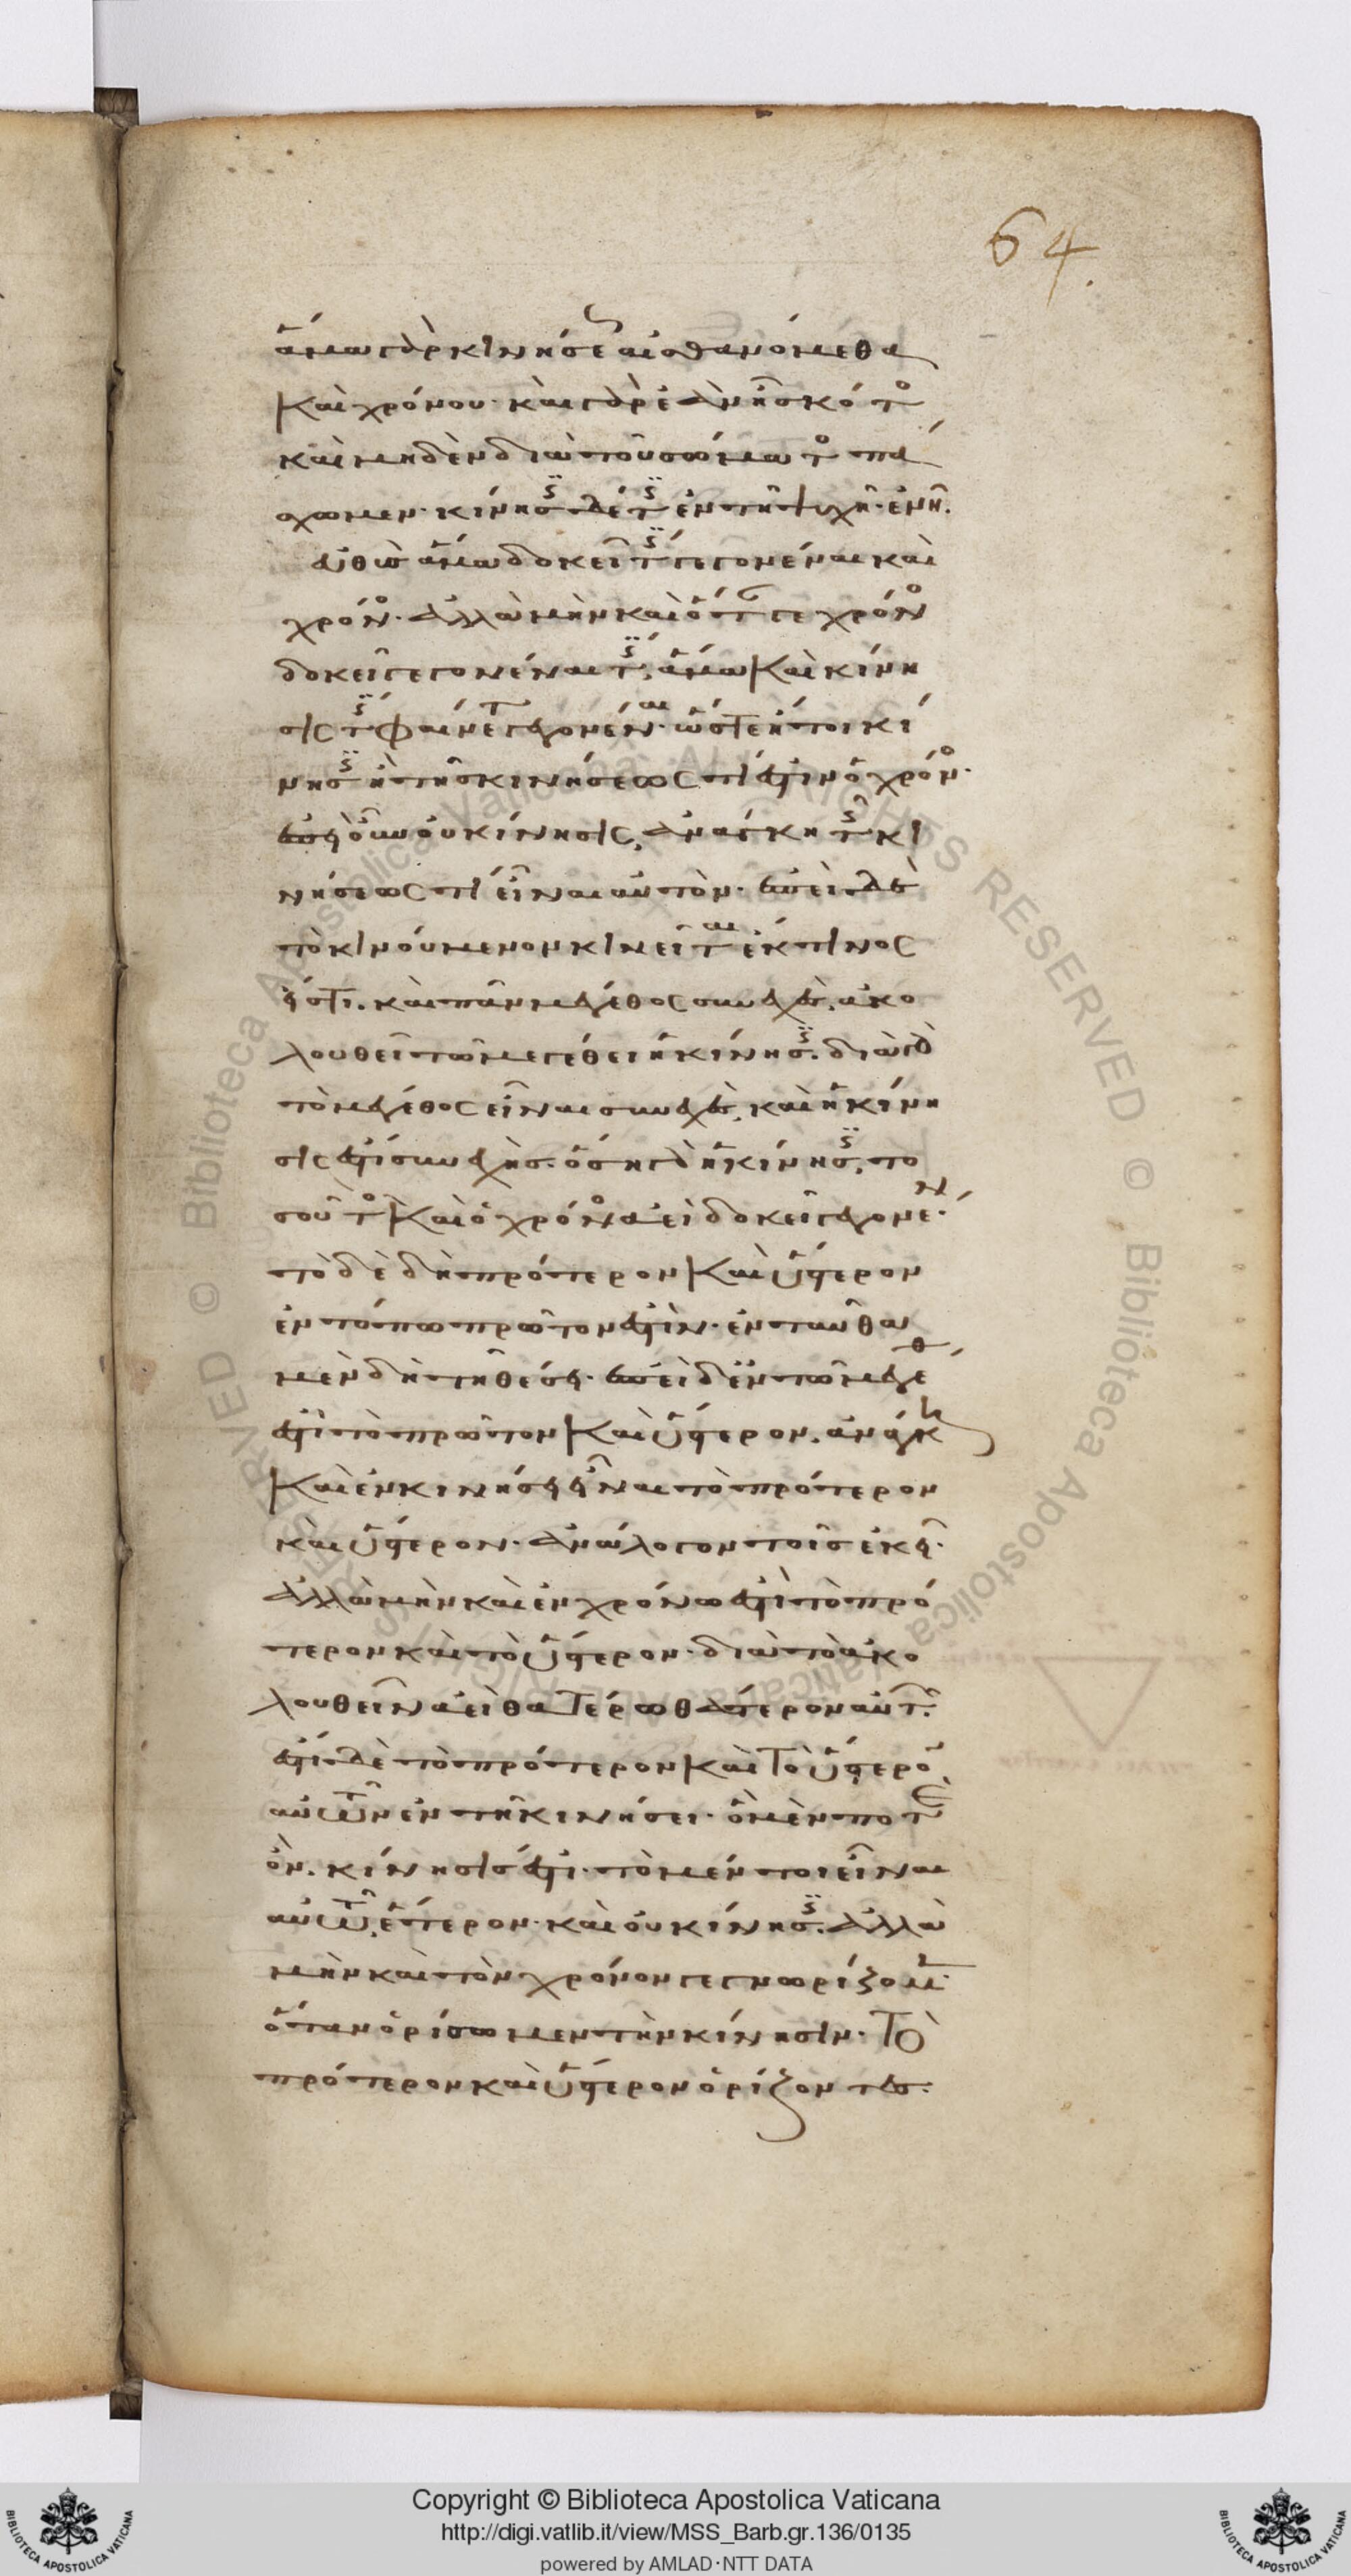 64.
ἅμα γὰρ κινήσεως αἰσθανόμεθα
καὶ χρόνου· καὶ γὰρ ἐὰν ᾖ σκότος
καὶ μηδὲν διὰ τοῦ σώματος πά
σχωμεν· κίνησις δέ τις ἐν τῇ ψυχῇ ἐνῇ.
εὐθὺς ἅμα δοκεῖ τις γεγονέναι καὶ
χρόνος· ἀλλὰ μὴν καὶ ὅταν γε χρόνος
δοκεῖ γεγονέναι τις, ἅμα καὶ κίνη
σίς τις φαίνεται γεγονέναι· ὥστε ἤτοι κί
νησις ἢ τῆς κινήσεώς τί ἐστιν ὁ χρόνος·
ἐπεὶ οὖν οὐ κίνησις, ἀνάγκη τῆς κι
νήσεώς τι εἶναι αὐτόν· ἐπεὶ δὲ
τὸ κινούμενον κινεῖται ἔκ τινος
εἴς τι. καὶ πᾶν μέγεθος συνεχές, ἀκο
λουθεῖ τῷ μεγέθει ἡ κίνησις. διὰ γὰρ
τὸ μέγεθος εἶναι συνεχές, καὶ ἡ κίνη
σίς ἐστι συνεχής. ὅση γὰρ ἡ κίνησις, το
σοῦτος καὶ ὁ χρόνος ἀεὶ δοκεῖ γεγονέναι·
τὸ δὲ δὴ πρότερον καὶ ὕστερον
ἐν τόπῳ πρῶτον ἐστίν· ἐνταῦθα
μὲν δὴ τῇ θέσει· ἐπεὶ δ' ἐν τῷ μεγέθει
ἐστὶ τὸ πρῶτον καὶ ὕστερον, ἀνάγκη
καὶ ἐν κινήσει εἶναι τὸ πρότερον
καὶ ὕστερον· ἀνάλογον τοῖς ἐκεῖ·
ἀλλὰ μὴν καὶ ἐν χρόνῳ ἐστὶ τὸ πρό
τερον καὶ τὸ ὕστερον· διὰ τὸ ἀκο
λουθεῖν ἀεὶ θατέρῳ θάτερον αὐτῶν.
ἐστὶ δὲ τὸ πρότερον καὶ τὸ ὕστερον
αὐτῶν ἐν τῇ κινήσει· ὃ μὲν ποτὲ
ὄν. κίνησίς ἐστι· τὸ μέν τοι εἶναι
αὐτῷ, ἕτερον· καὶ οὐ κίνησις. ἀλλὰ
μὴν καὶ τὸν χρόνον γε γνωρίζομεν·
ὅταν ὁρίσωμεν τὴν κίνησιν· τὸ
πρότερον καὶ ὕστερον ὁρίζοντες.
Copyright © Biblioteca Apostolica Vaticana
http://digi.vatlib.it/view/MSS_Barb.gr.136/0135
powered by AMLAD·NTT DATA